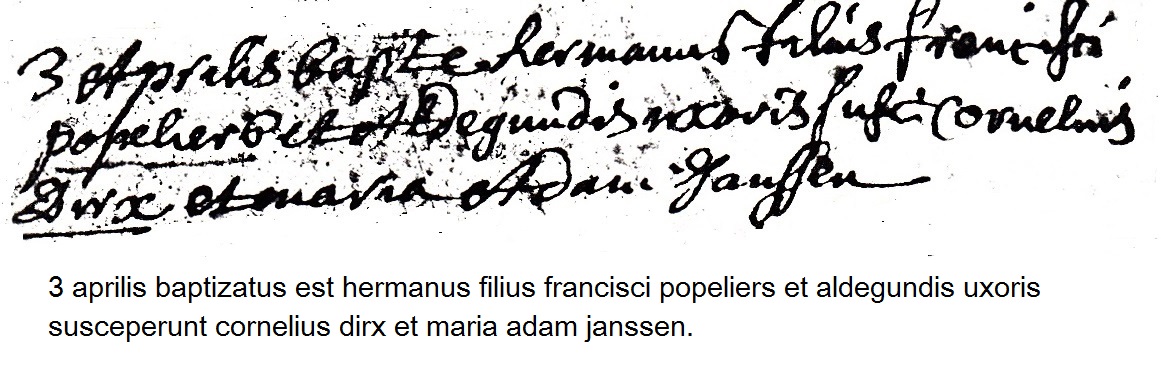 3 Aprilis baptᵉ hermanus filius francisci
popeliers et Aldegundis uxoris susc: Cornelius
Dirx et maria Adam Janssen
3 aprilis baptizatus est hermanus filius francisci popeliers et aldegundis uxoris
susceperunt cornelius dirx et maria adam janssen.